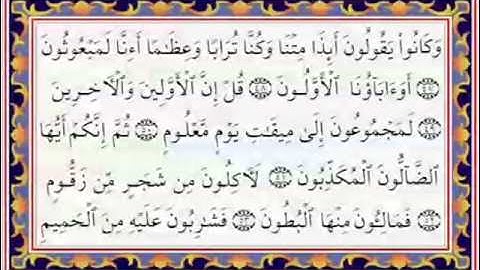 وَكَانُوا۟ يَقُولُونَ أَئِذَا مِتْنَا وَكُنَّا تُرَابًا وَعِظَٰمًا أَءِنَّا لَمَبْعُوثُونَ
﴿٤٧﴾ أَوَءَابَآؤُنَا ٱلْأَوَّلُونَ ﴿٤٨﴾ قُلْ إِنَّ ٱلْأَوَّلِينَ وَٱلْءَاخِرِينَ
﴿٤٩﴾ لَمَجْمُوعُونَ إِلَىٰ مِيقَٰتِ يَوْمٍ مَّعْلُومٍ ﴿٥٠﴾ ثُمَّ إِنَّكُمْ أَيُّهَا
ٱلضَّآلُّونَ ٱلْمُكَذِّبُونَ ﴿٥١﴾ لَءَاكِلُونَ مِن شَجَرٍ مِّن زَقُّومٍ
﴿٥٢﴾ فَمَالِـُٔونَ مِنْهَا ٱلْبُطُونَ ﴿٥٣﴾ فَشَٰرِبُونَ عَلَيْهِ مِنَ ٱلْحَمِيمِ